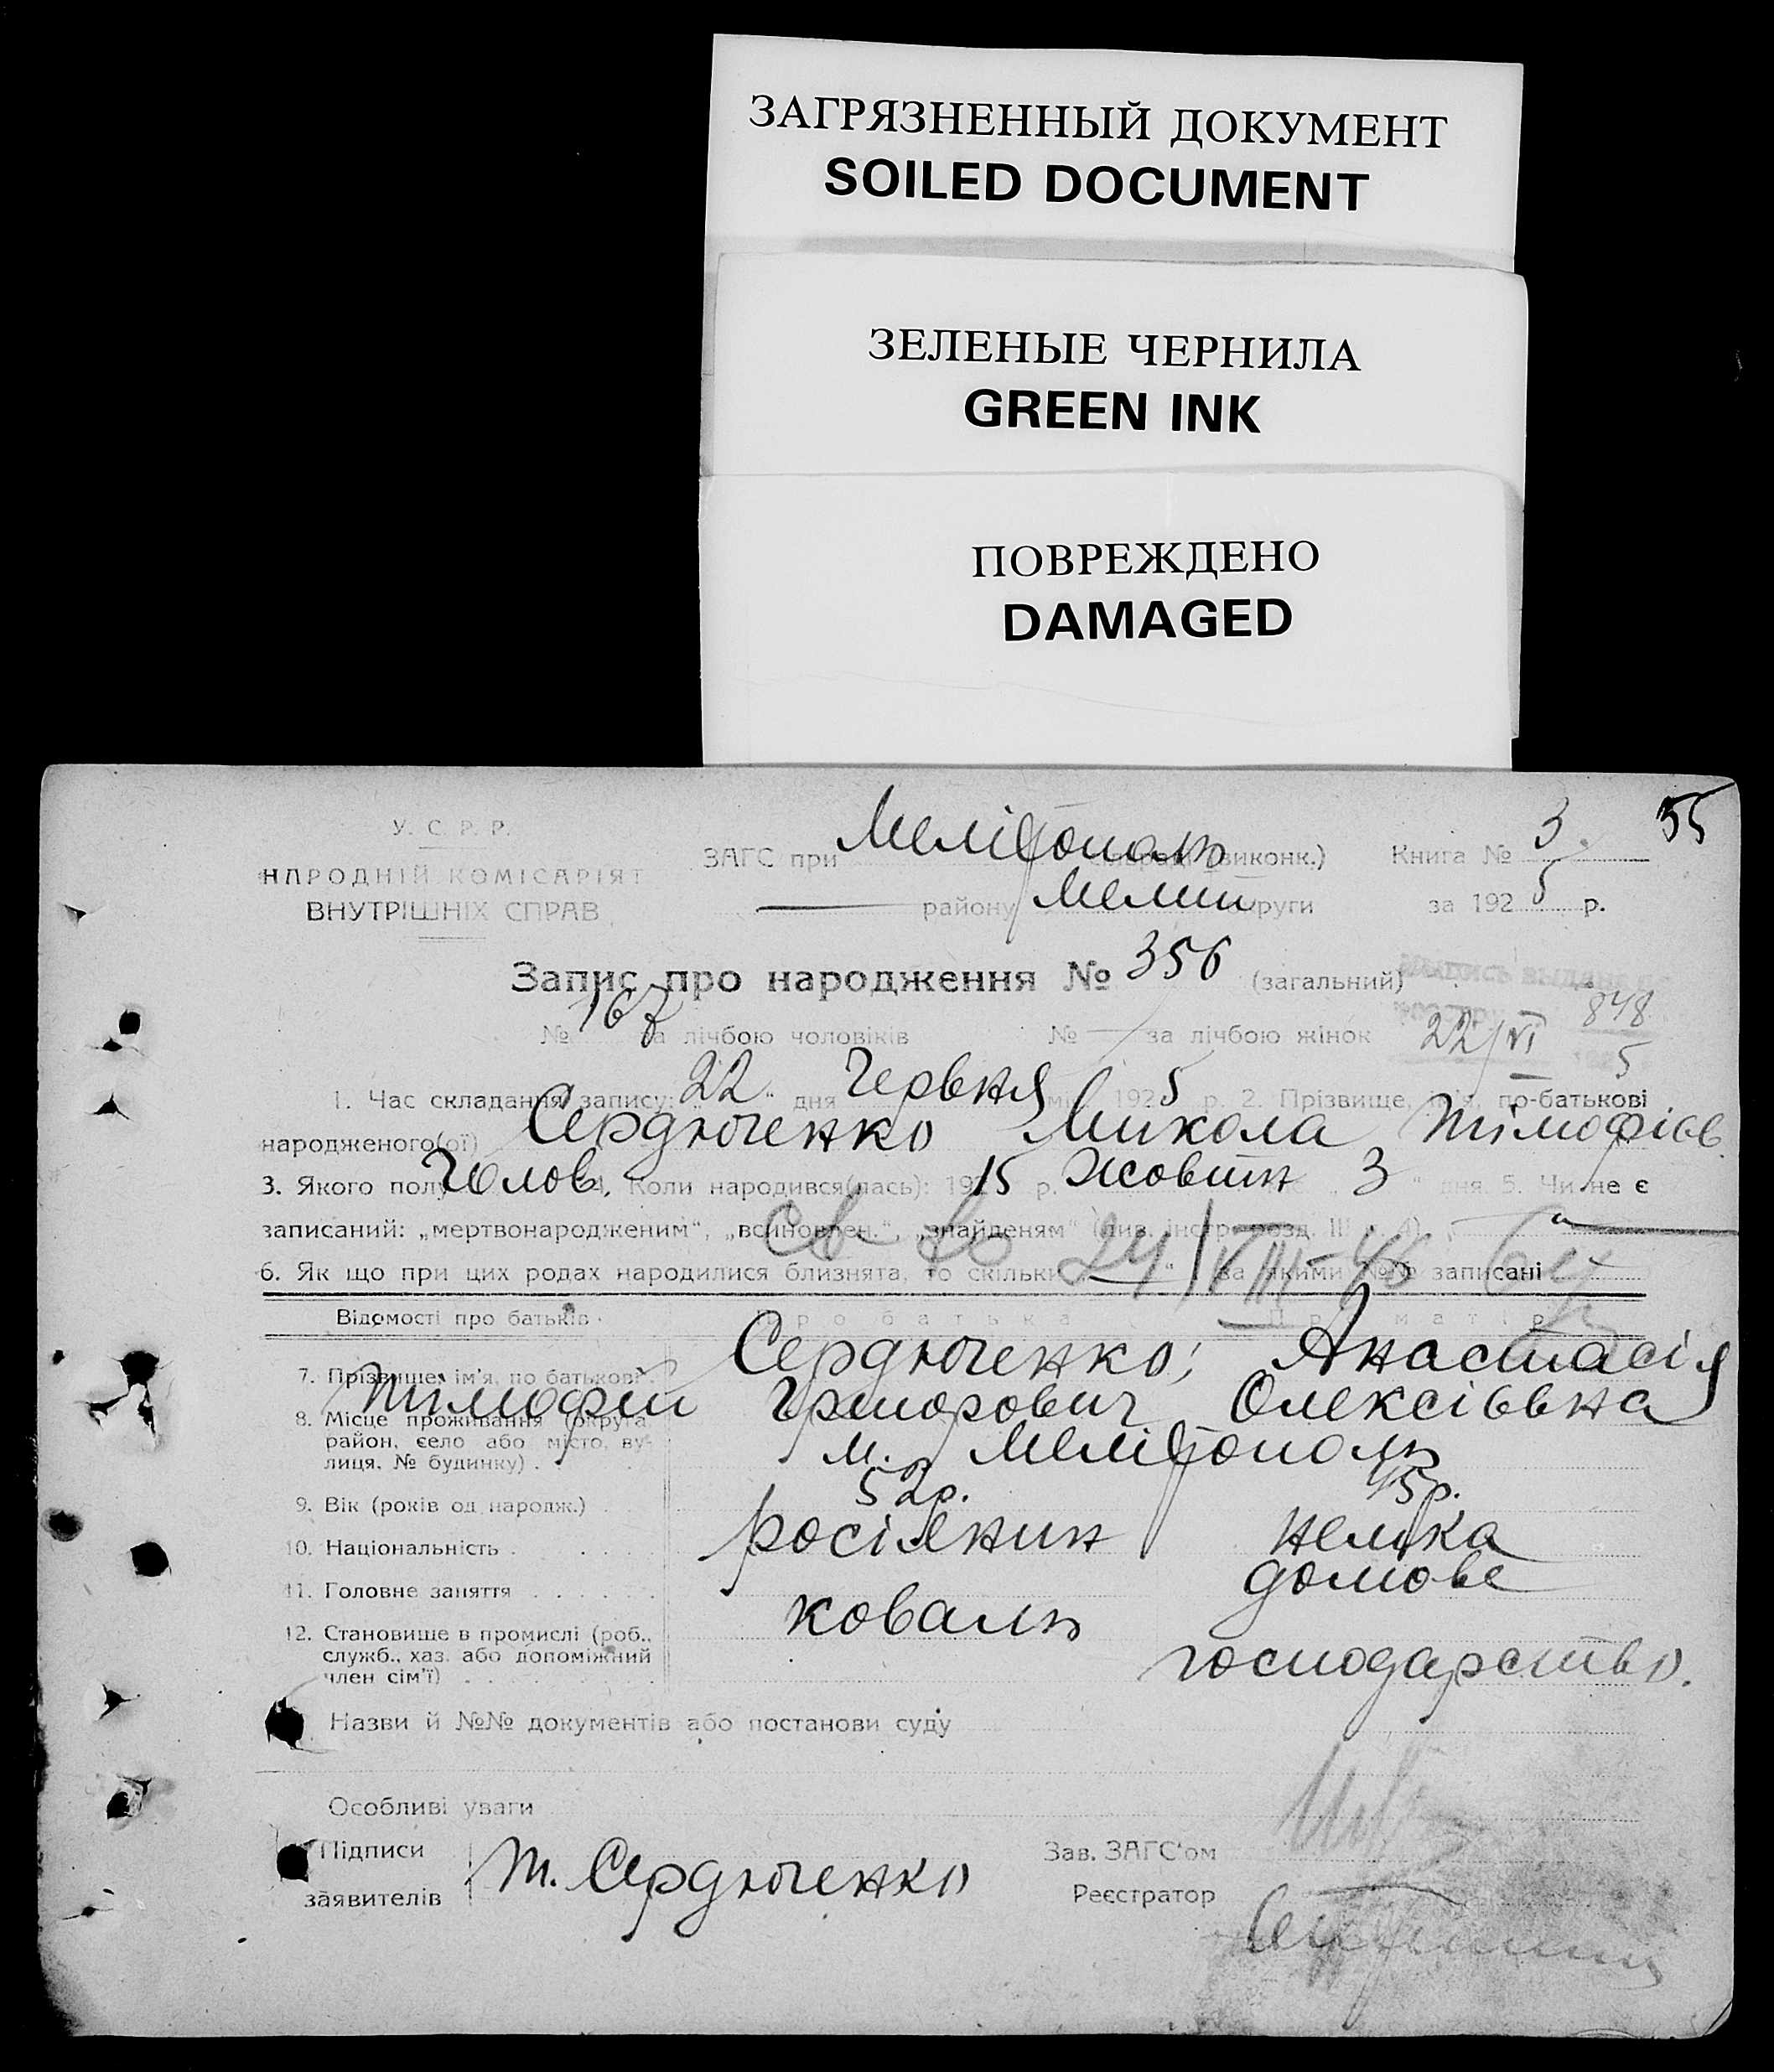 ЗАГРЯЗНЕННЫЙ ДОКУМЕНТ
SOILED DOCUMENT
ЗЕЛЕНЫЕ ЧЕРНИЛА
GREEN INK
ПОВРЕЖДЕНО
DAMAGED
35
У. С. Р. Р.
НАРОДНІЙ КОМІСАРІЯТ
ВНУТРІШНІХ СПРАВ
ЗАГС при Мелітополь виконк.) Книга № 3.
району Мелит округи за 1925 р.
Запис про народження № 356 (загальний)
№ 167 за лічбою чоловіків № — за лічбою жінок 22/VI 848
5
1. Час складання запису: „22“ дня Червня міс. 1925 р. 2. Прізвище, ім'я, по-батькові
народженого(ої) Сердюченко Микола Тімофієв
3. Якого полу Чолов. 4. Коли народився(лась): 1915 р. Жовтн 3 “ дня 5. Чи не є
записаний: „мертвонародженим“, „всиновлен.“, „знайденям“ (див. інстр. розд. III
св во 24/VIII-46
6. Як що при цих родах народилися близнята, то скільки — за якими №№ записані
Відомості про батьків Про батька Про матір
7. Прізвище, ім'я, по батькові Сердюченко; Анастасія
Тімофій Григорович Олексіївна
8. Місце проживання (округа, район, село або місто, вулиця, № будинку) м. Мелітополь
9. Вік (років од народж.) 52р. 45р.
10. Національність росіянин немка
11. Головне заняття коваль домове
12. Становище в промислі (роб., служб., хаз. або допоміжний член сім'ї) господарство.
Назви й №№ документів або постанови суду
Особливі уваги
Підписи заявителів Т. Сердюченко
Зав. ЗАГС'ом
Реєстратор